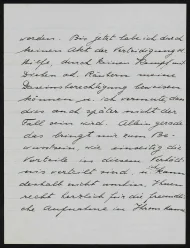 werden. Bis jetzt habe ich durch
keinen Akt der Verteidigung od.
Hilfe, durch keinen Kampf mit
Dieben od. Räubern meine
Daseinsberechtigung beweisen
können u. ich vermute, dass
dies auch später nicht der
Fall sein wird. Allein gerade
das bringt mir zum Be-
wusstsein, wie einseitig die
Vorteile in diesem Verhält-
nis verteilt sind, u. ich kann
deshalb nicht umhin, Ihnen
recht herzlich für die freundli-
che Aufnahme in Ihrem